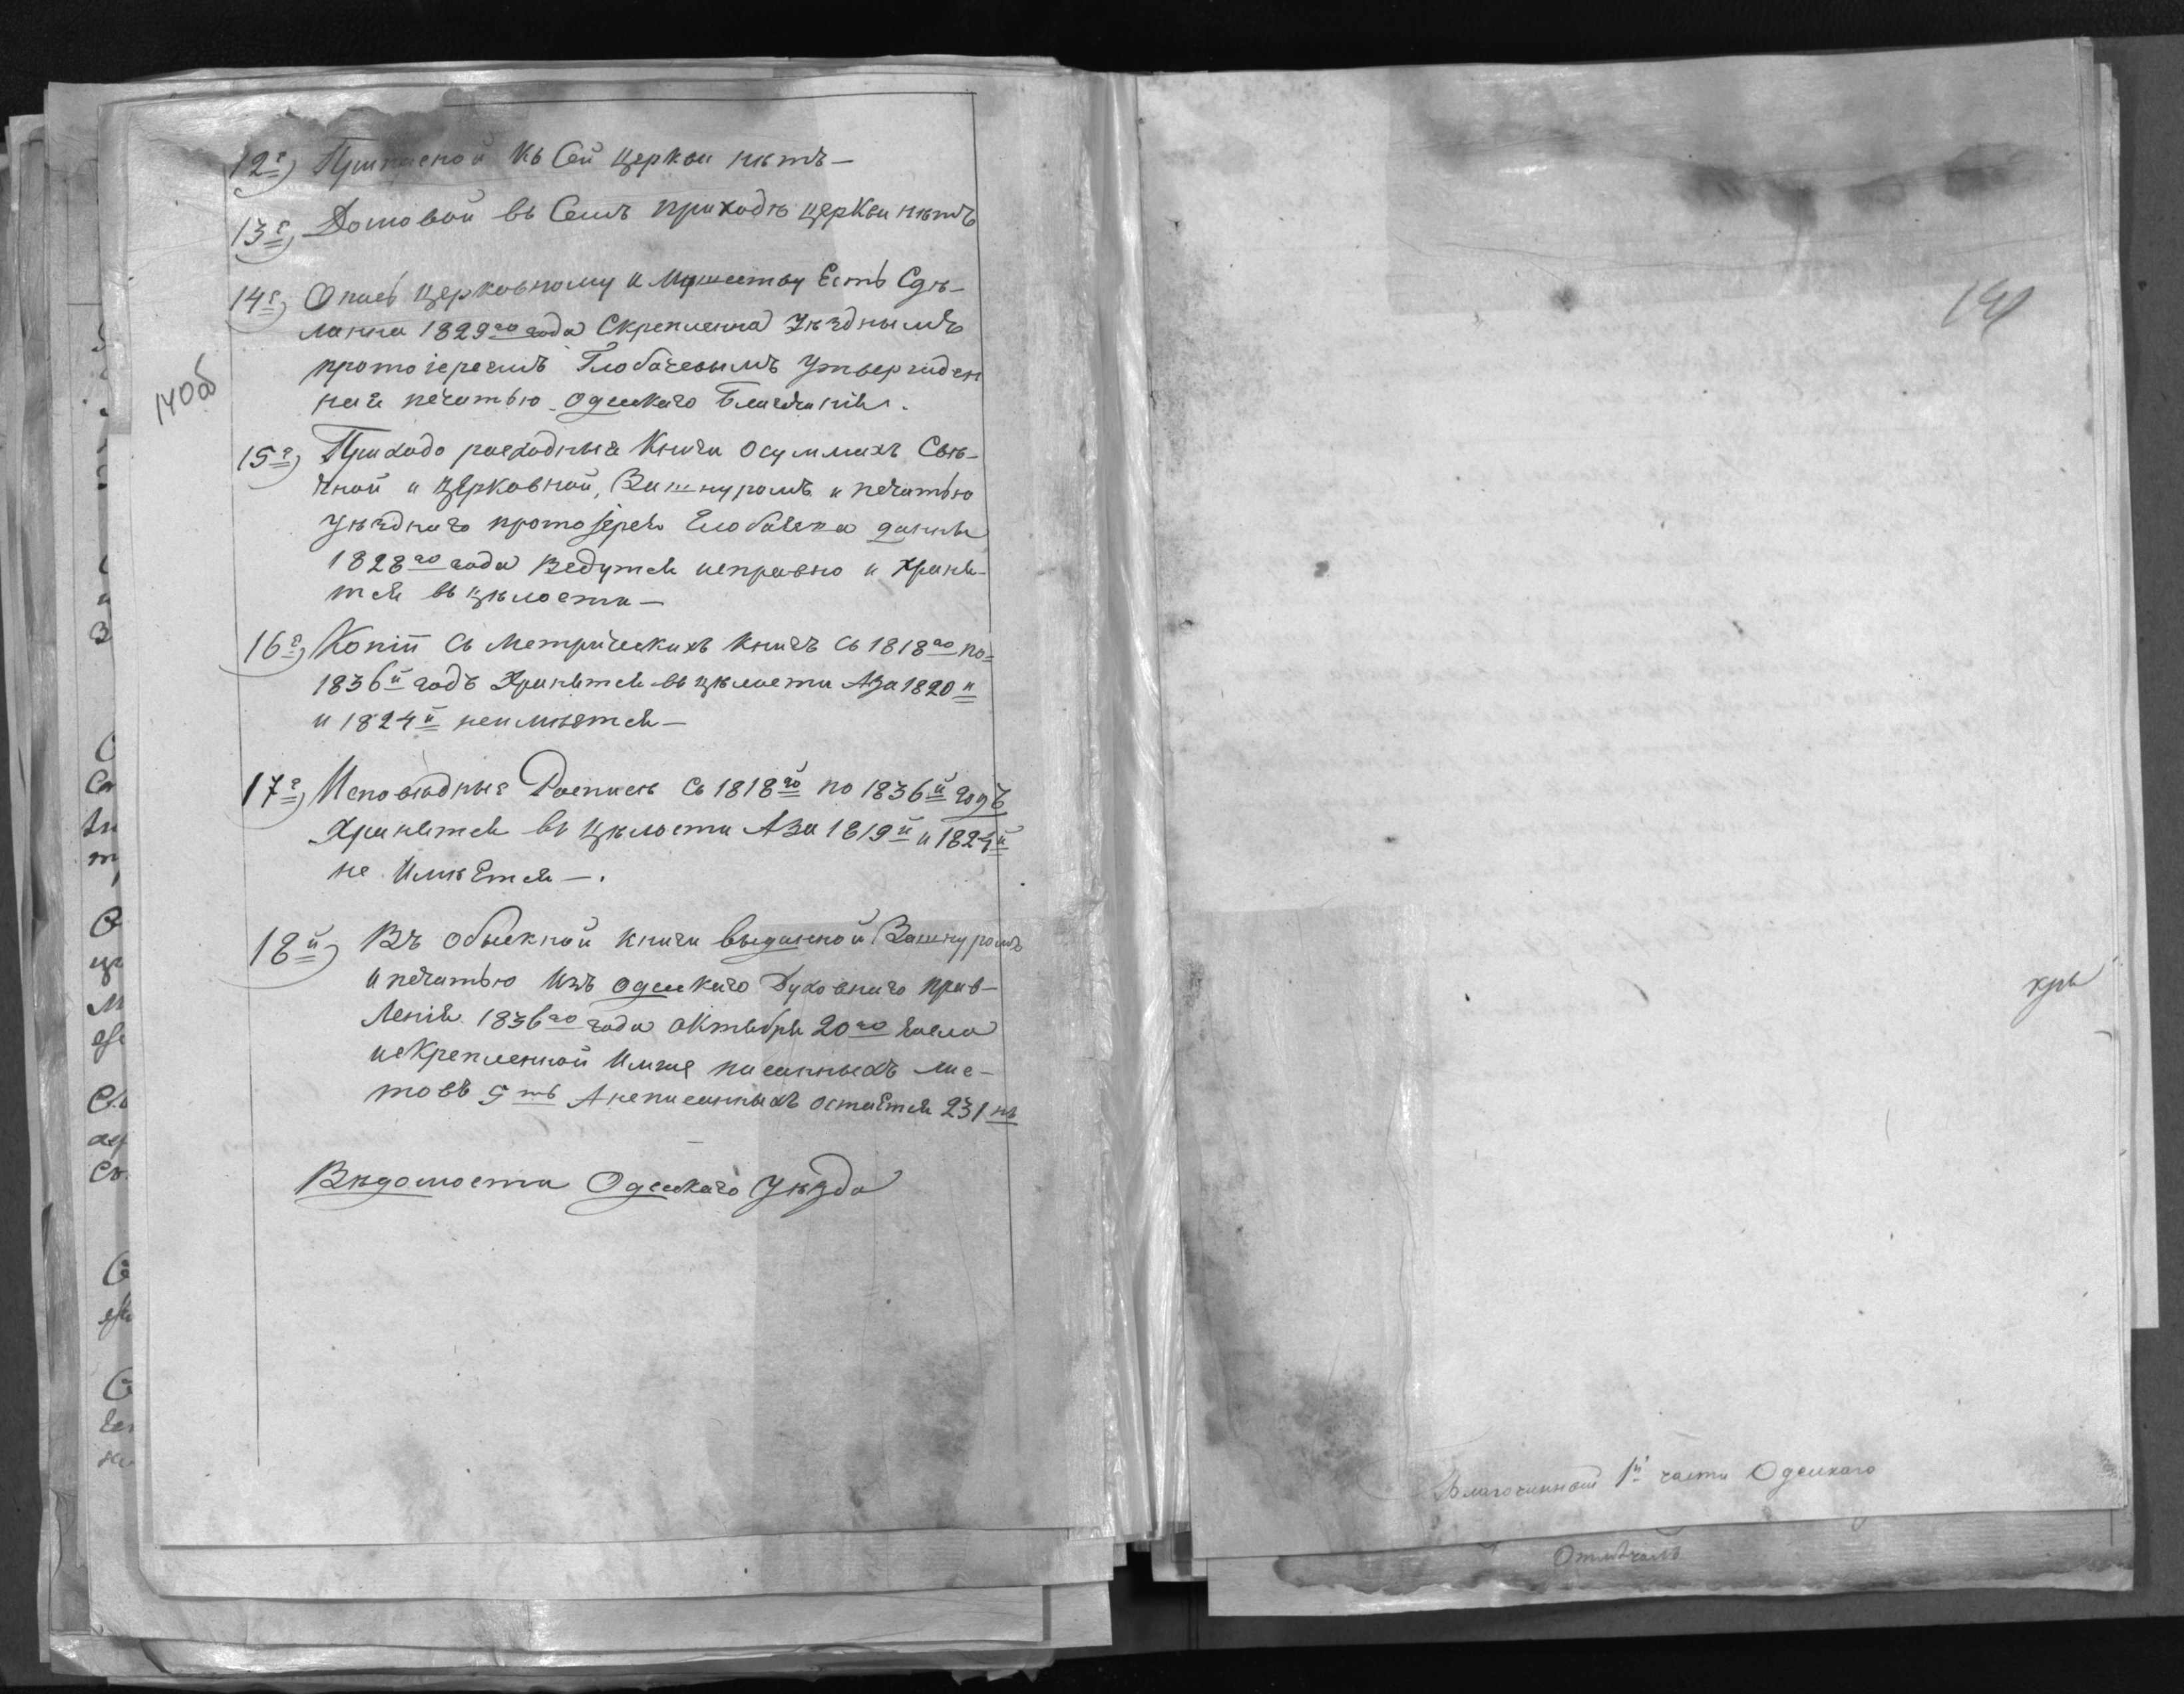 12е) Приписной къ Сей церкви нѣтъ —
13е) Домовой въ Семъ приходѣ церкви нѣтъ
14е) Опись церковному имуществу Есть Сдѣ-
ланна 1829го года Скрепленна Уѣзднымъ
протоіереемъ Глобачевымъ Утвержден
ная печатью Одескаго Благочинія.
140об
15е) Приходо расходныя Книги о суммахъ Свѣ-
чной и Церковной, За шнуромъ и печатью
Уѣзднаго протоіерея Глобачева данныя
1828го года Ведутся исправно и храня-
тся въ цѣлости —
16е) Копіи Съ Метрическихъ Книгъ Съ 1818го по=
1836й годъ Хранятся въ цѣлости А За 1820й
и 1824й неимѣется —
17е) Исповѣдныя Росписи Съ 1818го по 1836й годъ
Хранятся въ Цѣлости А За 1819й и 1824й
не Имѣется —.
18й) Въ обыскной книги выданной За шнуромъ
и печатью Изъ Одескаго Духовнаго прав-
ленія 1836го года Октября 20го числа
искрепленной писанныхъ лис-
товъ 5ть А неписанныхъ остается 231нъ
Вѣдомости Одескаго Уѣзда
Благочинный 1й части Одескаго